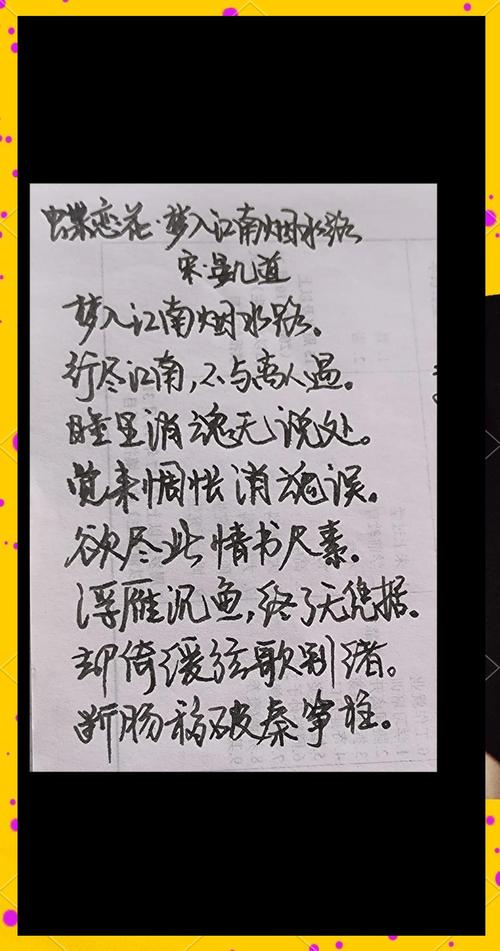 蝶恋花·梦入江南烟水路
宋·晏几道
梦入江南烟水路。
行尽江南,不与离人遇。
睡里消魂无说处。
觉来惆怅消魂误。
欲尽此情书尺素。
浮雁沉鱼,终了无凭据。
却倚缓弦歌别绪。
断肠移破秦筝柱。